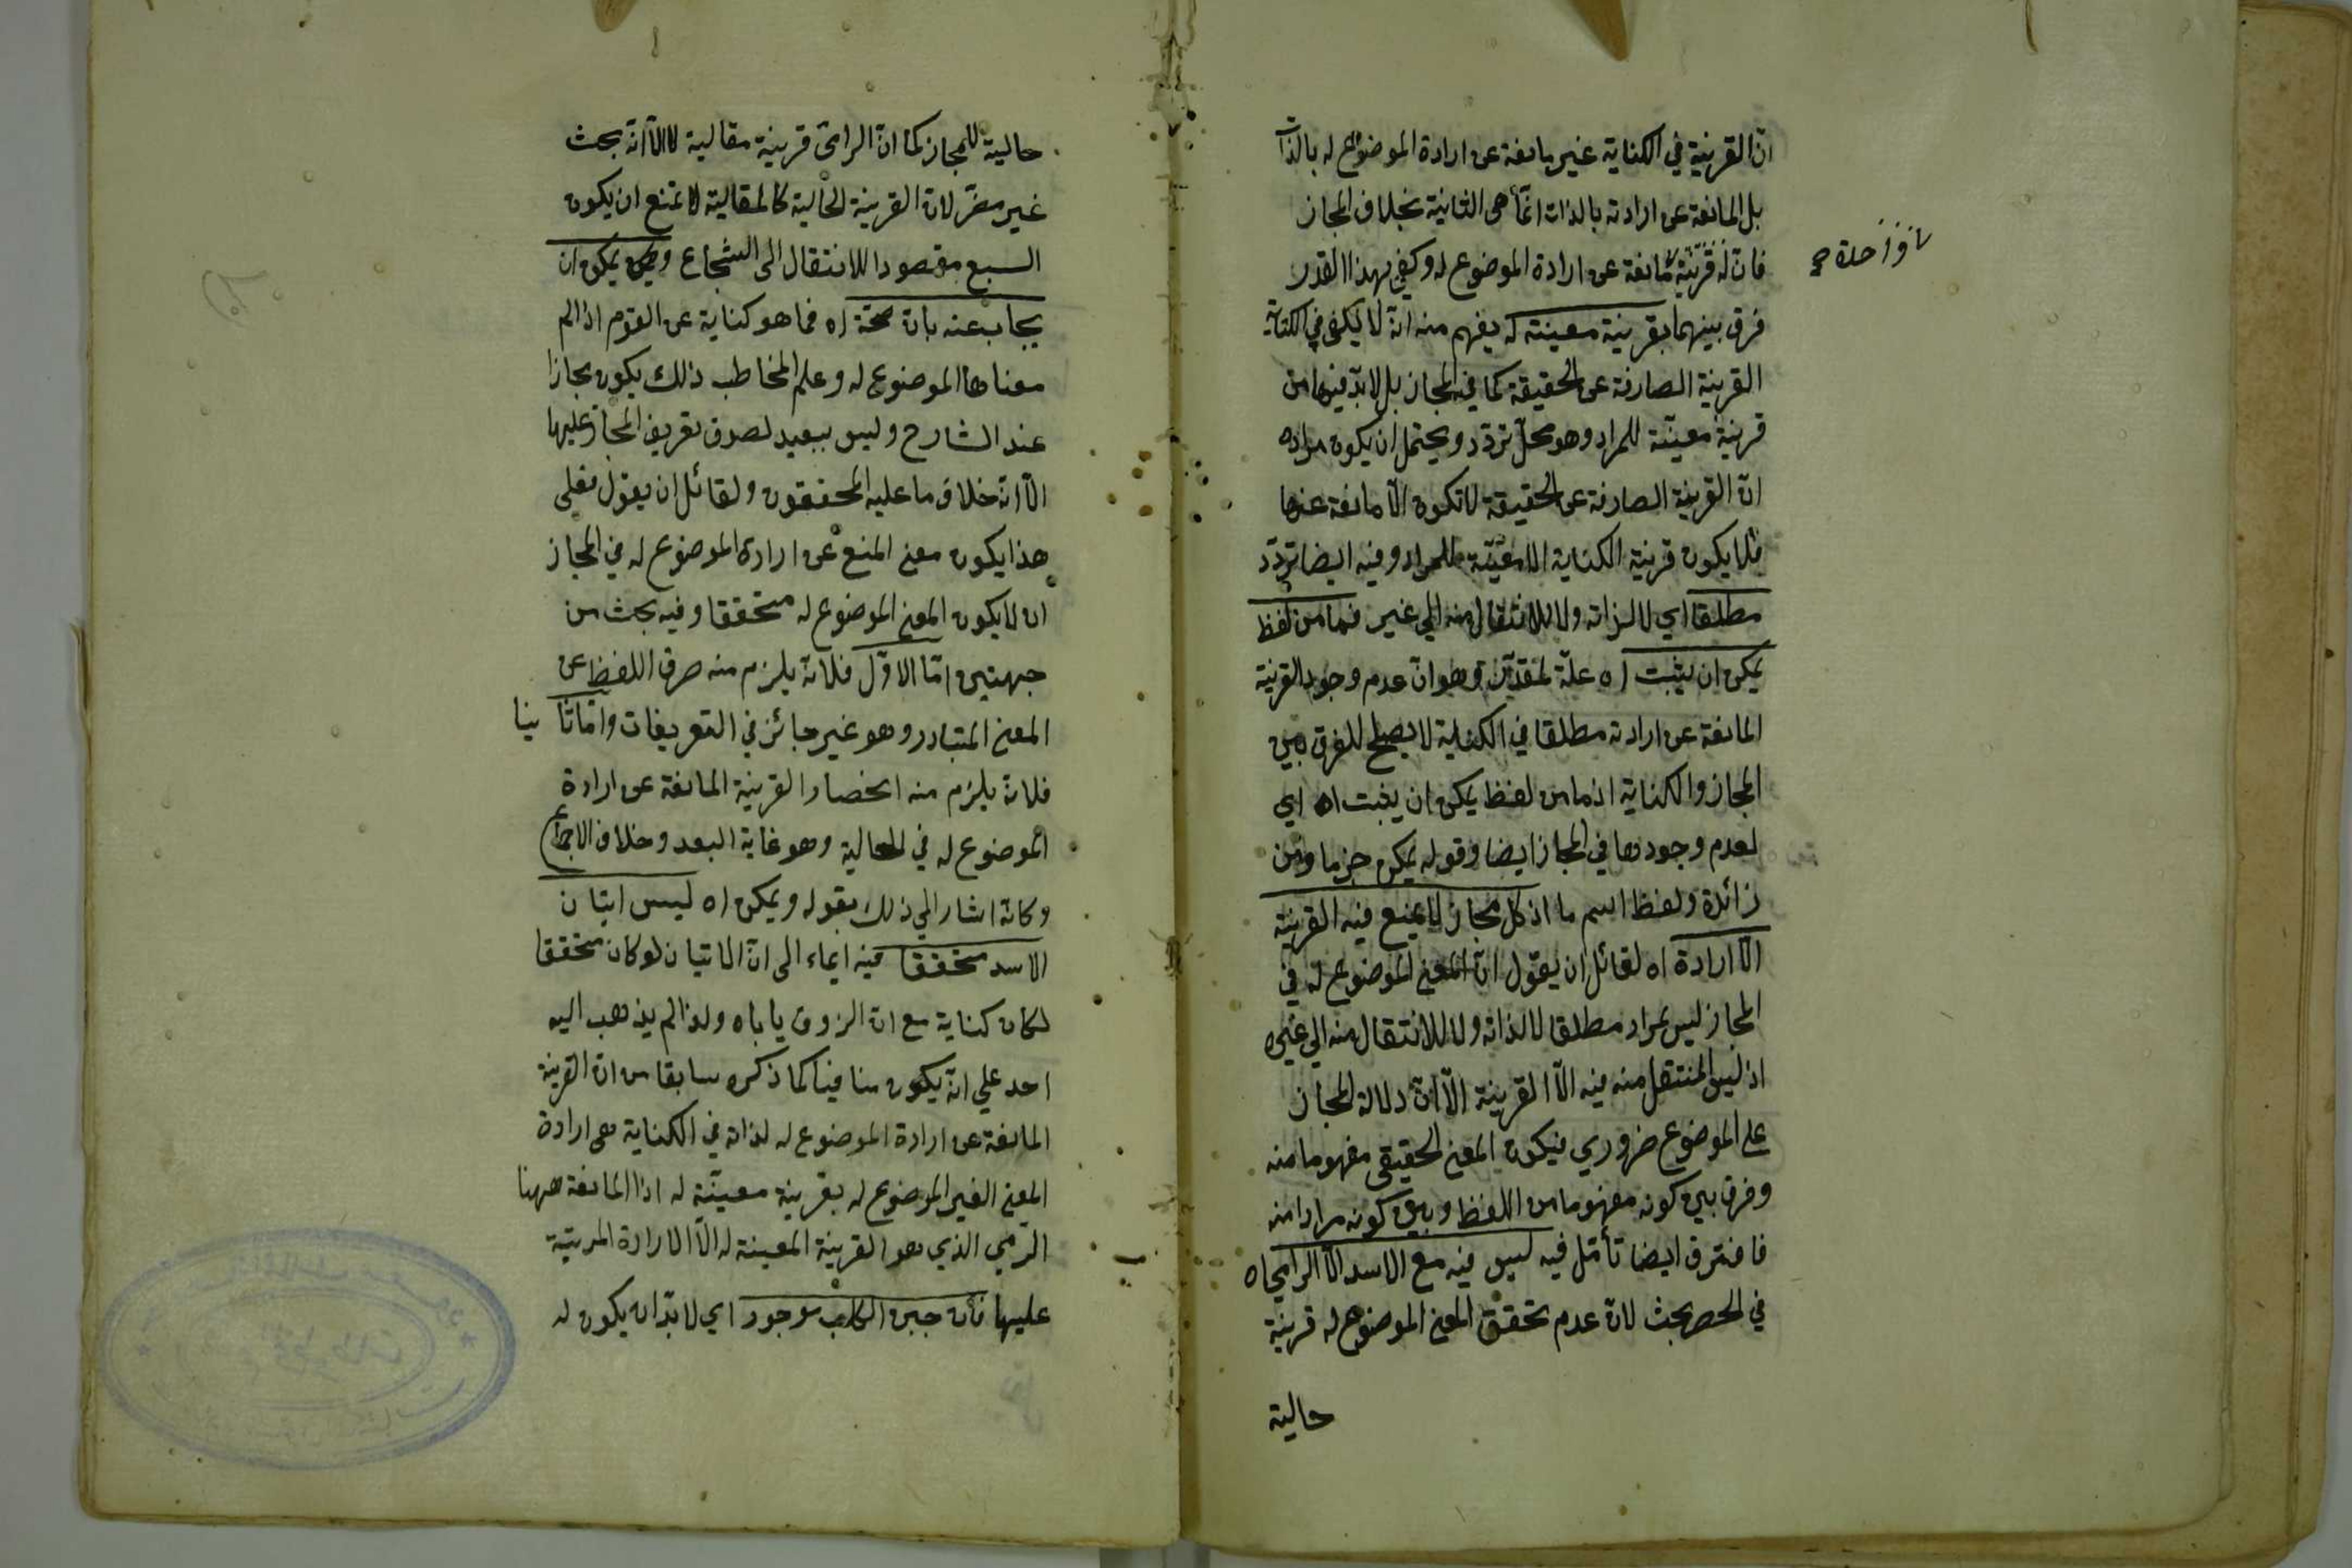 ان القرينة في الكناية غير مانعة عن ارادة الموضوع له بالذات
بل المانعة عن ارادته بالذات انما هى الثانية بخلاف المجاز
فان له قرينة مانعة عن ارادة الموضوع له وكفى بهذا القدر
فرق بينهما بقرينة معينة له يفهم منه انه لا يكفى في الكناية
القرينة الصارفة عن الحقيقة كما في المجاز بل لابد فيها من
قرينة معينة للمراد وهو محل تردد ويحتمل ان يكون مراده
ان القرينة الصارفة عن الحقيقة لا تكون الا مانعة عنها
فلا يكون قرينة الكناية الا معينة للمراد وفيه ايضا تردد
مطلقا اي لا لذاته ولا للانتقال منه الي غير فما من لفظ
يمكن ان يثبت اه علة لمقدر وهو ان عدم وجود القرينة
المانعة عن ارادته مطلقا في الكناية لا يصلح للفرق بين
المجاز والكناية اذ ما من لفظ يمكن ان يثبت اه اي
لعدم وجودها في المجاز ايضا وقوله يمكن جزما ومن
زائدة ولفظ اسم ما اذ كل مجاز لا يمنع فيه القرينة
الا ارادة اه لقائل ان يقول ان المعنى الموضوع له في
المجاز ليس بمراد مطلقا لا لذاته ولا للانتقال منه الي غيره
اذ ليس المنتقل منه فيه الا القرينة الا ان دلالة المجاز
على الموضوع ضروري فيكون المعنى الحقيقى مفهوما منه
وفرق بين كونه مفهوما من اللفظ وبين كونه مرادا منه
فافترق ايضا تأمل فيه ليس فيه مع الاسد الا الرامى اه
في الحصر بحث لان عدم تحقق المعنى الموضوع له قرينة
حالية
حالية للمجاز كما ان الرامى قرينة مقالية له الا انه بحث
غير مضر لان القرينة الحالية كالمقالية لا تمنع ان يكون
السبع مقصودا للانتقال الى الشجاع ويمكن ان
يجاب عنه بان صحة اه فما هو كناية عن القوم اذا لم
معناها الموضوع له وعلم المخاطب ذلك يكون مجازا
عند الشارح وليس ببعيد لصدق تعريف المجاز عليها
الا انه خلاف ما عليه المحققون ولقائل ان يقول فعلى
هذا يكون معنى المنع عن ارادة الموضوع له في المجاز
ان لا يكون المعنى الموضوع له متحققا وفيه بحث من
جهتين اما الاول فلانه يلزم منه صرف اللفظ عن
المعنى المتبادر وهو غير جائز في التعريفات واما ثانيا
فلانه يلزم منه انحصار القرينة المانعة عن ارادة
الموضوع له في الحالية وهو غاية البعد وخلاف الاجماع
وكانه اشار الي ذلك بقوله ويمكن اه ليس اتيان
الاسد متحققا فيه ايماء الى ان الاتيان لو كان متحققا
لكان كناية مع ان الذوق ياباه ولذا لم يذهب اليه
احد على انه يكون منافيا كما ذكره سابقا من ان القرينة
المانعة عن ارادة الموضوع له لذاته في الكناية هى ارادة
المعنى الغير الموضوع له بقرينة معينة له اذ المانعة ههنا
الرمي الذي هو القرينة المعينة له الا الارادة المرتبة
عليها فان جبن الكلب موجود اي لا بد ان يكون له